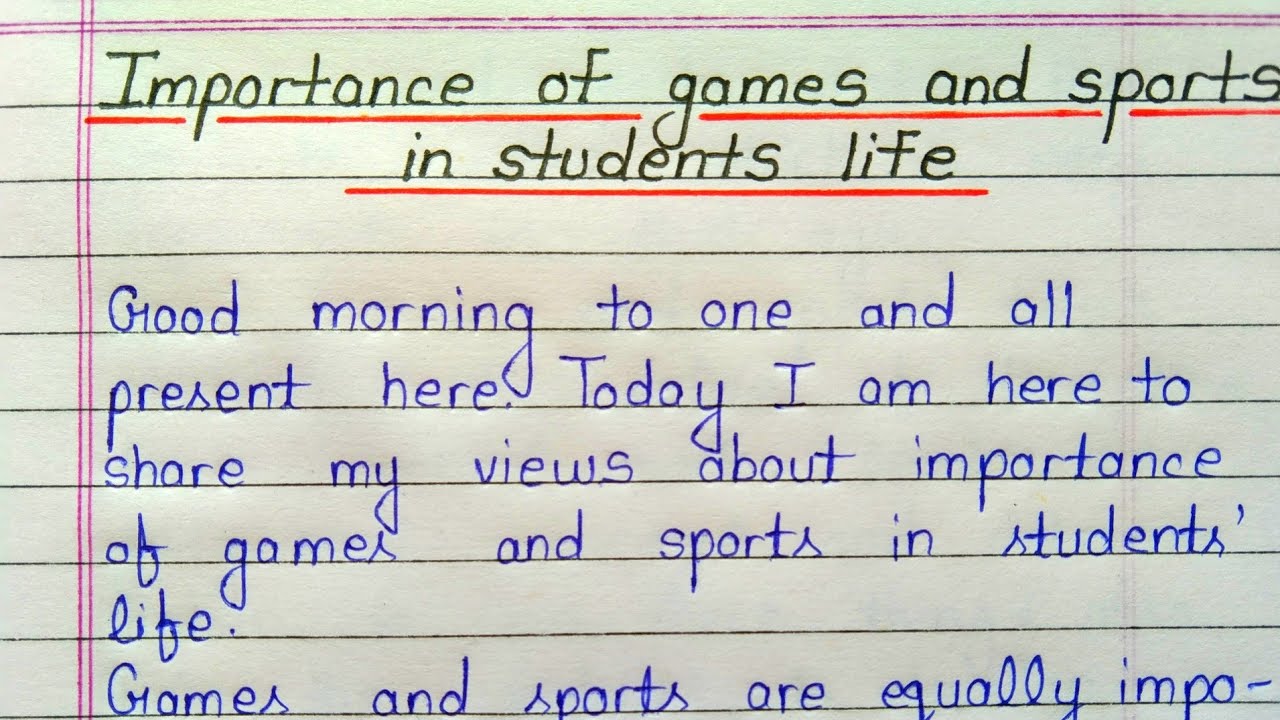 Importance of games and sports
in students life
Good morning to one and all
present here. Today I am here to
share my views about importance
of games and sports in students'
life.
Games and sports are equally impo-